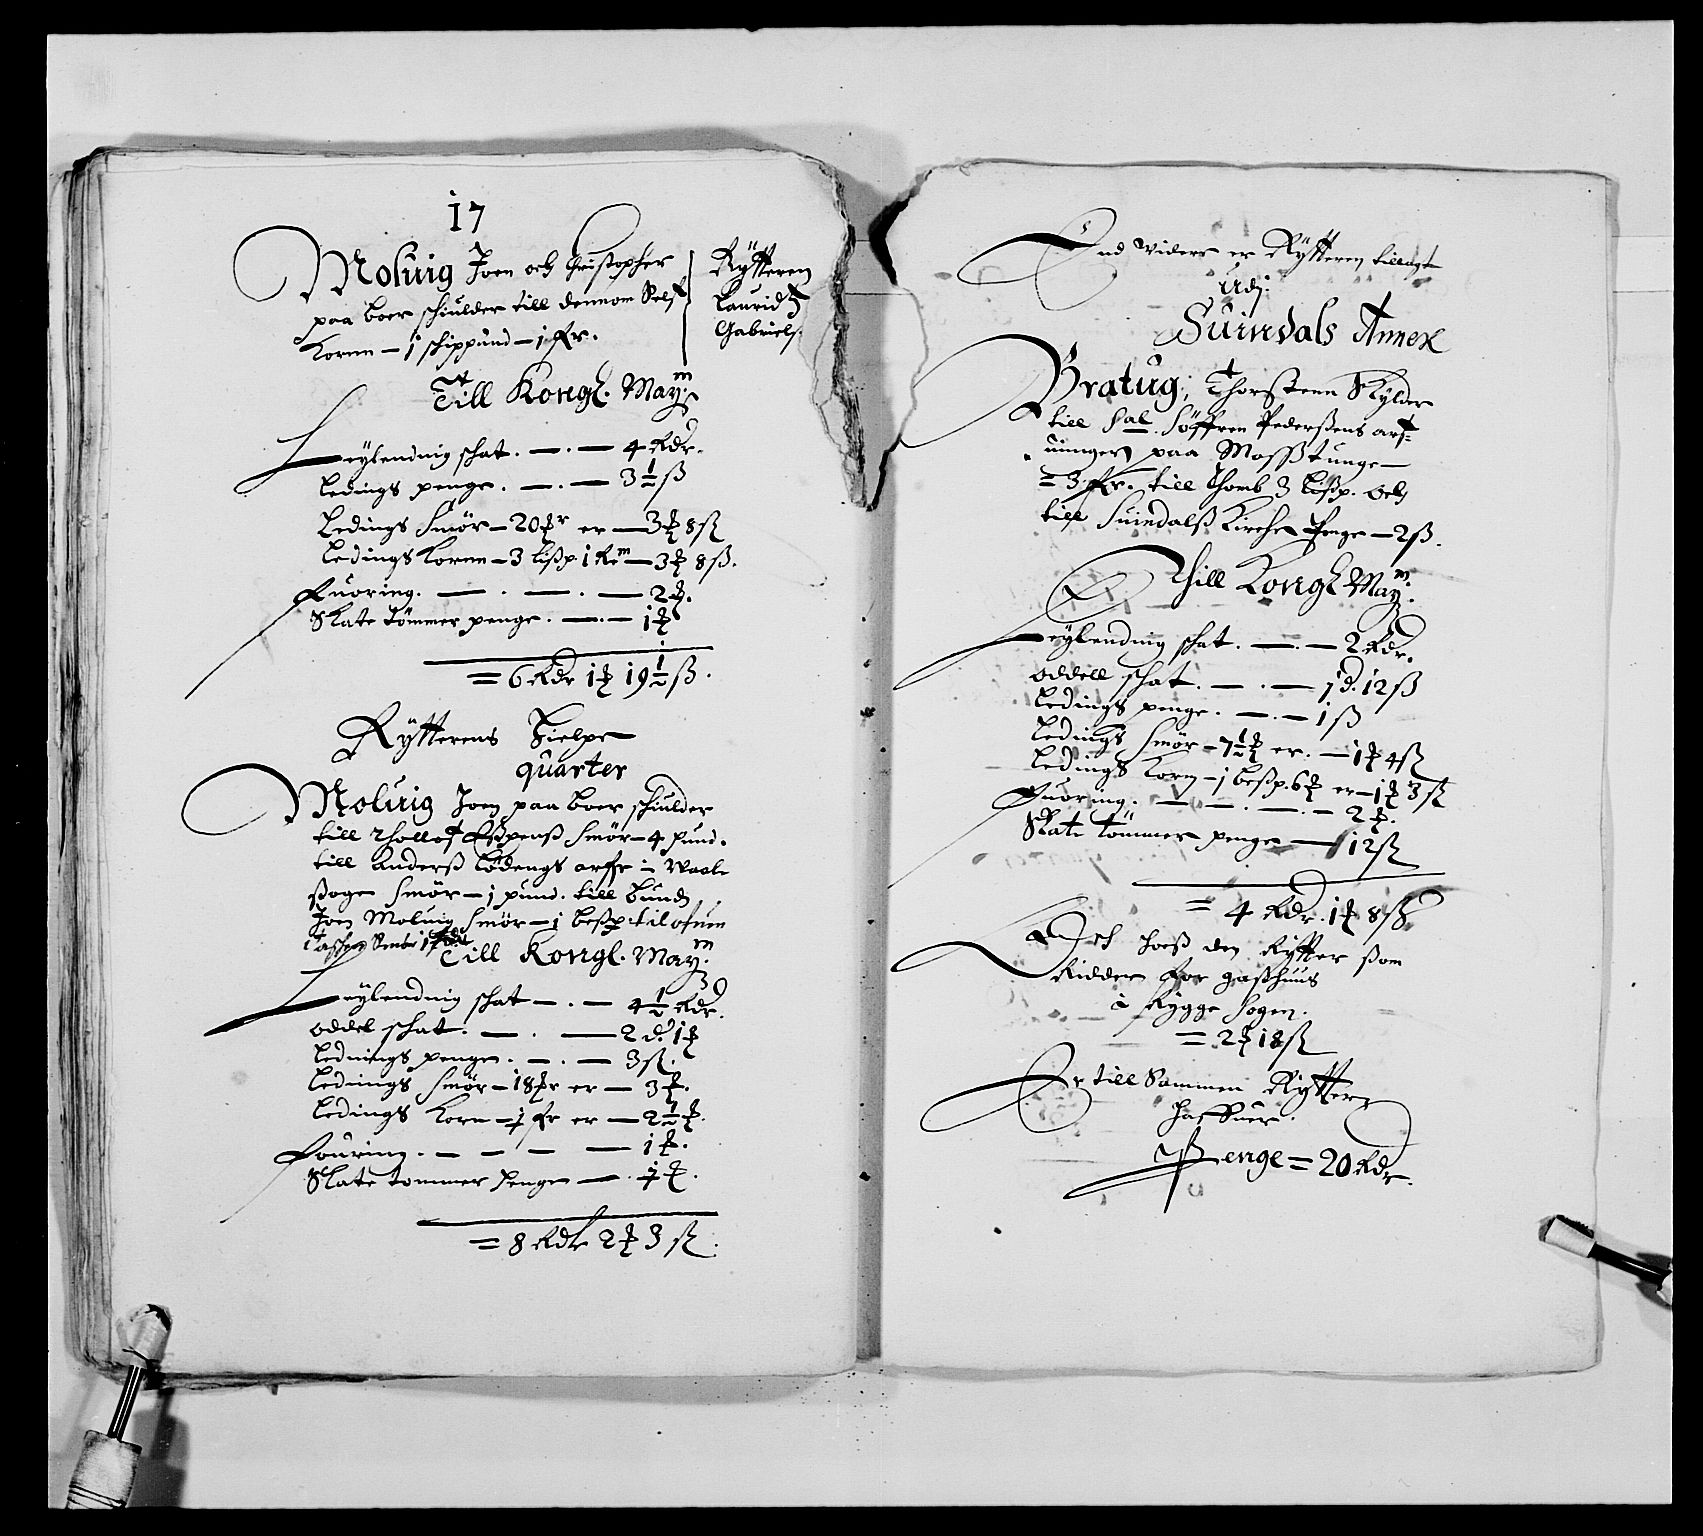 17
Moluig Joen och Christopher
paa boer schiulder till dennom Self
Korne – 1 schippund – 1 fr.
Rÿtteren
Lauridtz
Gabriels.
Till Kongl. Maÿ:
Leÿlendnig schat. — . — 4 Rdr.
Ledings penge. — . — 3½ ß
Ledings Smör – 20 er — 3 8 ß
Ledings Korne – 3 lißp. 1 Rem — 3 8 ß.
Fuoring. — . — . — 2
Skate tömmer penge. — . — 1
= 6 Rdr 1 19½ ß.
Rÿtterens Hielpe
quarter
Moluig Joen paa boer schiulder
till Thollef Eßpens Smör – 4 pund.
till Anderß Lödengs arfr i Waale
ßogn Smör – 1 pund. till bunden
Joen Moluig Smör – 1 beßp.
Till Kongl. Maÿ:
Leÿlendnig schat — . — 4½ Rdr.
oddel schat. — . — 2 d. 1
Lednings penge. — . — 3 ß.
Ledings Smör – 18 er — 3
Ledings Korn – 1 fr er — 2½
Fouring. — — — — 1
Skate tommer Penge — . 1
= 8 Rdr 2 3 ß.
End Videre er Rÿtteren tillagt
Udj:
Suindals Annex
Bratug, Thorsten Skÿlder
till Sal. Söffren Pederßens arf=
uinger paa Moßßtunge –
= 3 fr. till Thomb 3 lißp. och
till Suindalß Kirche Penge – 2 ß.
Thill Kongl Maÿ:
Leÿlending schat. — . — 2 Rdr.
oddell schat. — . — 1 d. 12 ß
Ledings penge. — . — 1 ß
Ledings Smör – 7½ er. — 1 4 ß
Ledings Korn – 1 beßp. 6 er – 1 3 ß
Fuoring. — — . — . — 2
Skate tömmer penge — 12 ß
= 4 Rdr. 1 8 ß
Och hoeß den Rÿtter ßom
Ridder for gaßhuus
i Rÿgge Sogen.
= 2 18 ß
Er till Sammen Rÿtteren
haffuer.
Penge = 20 Rdr.